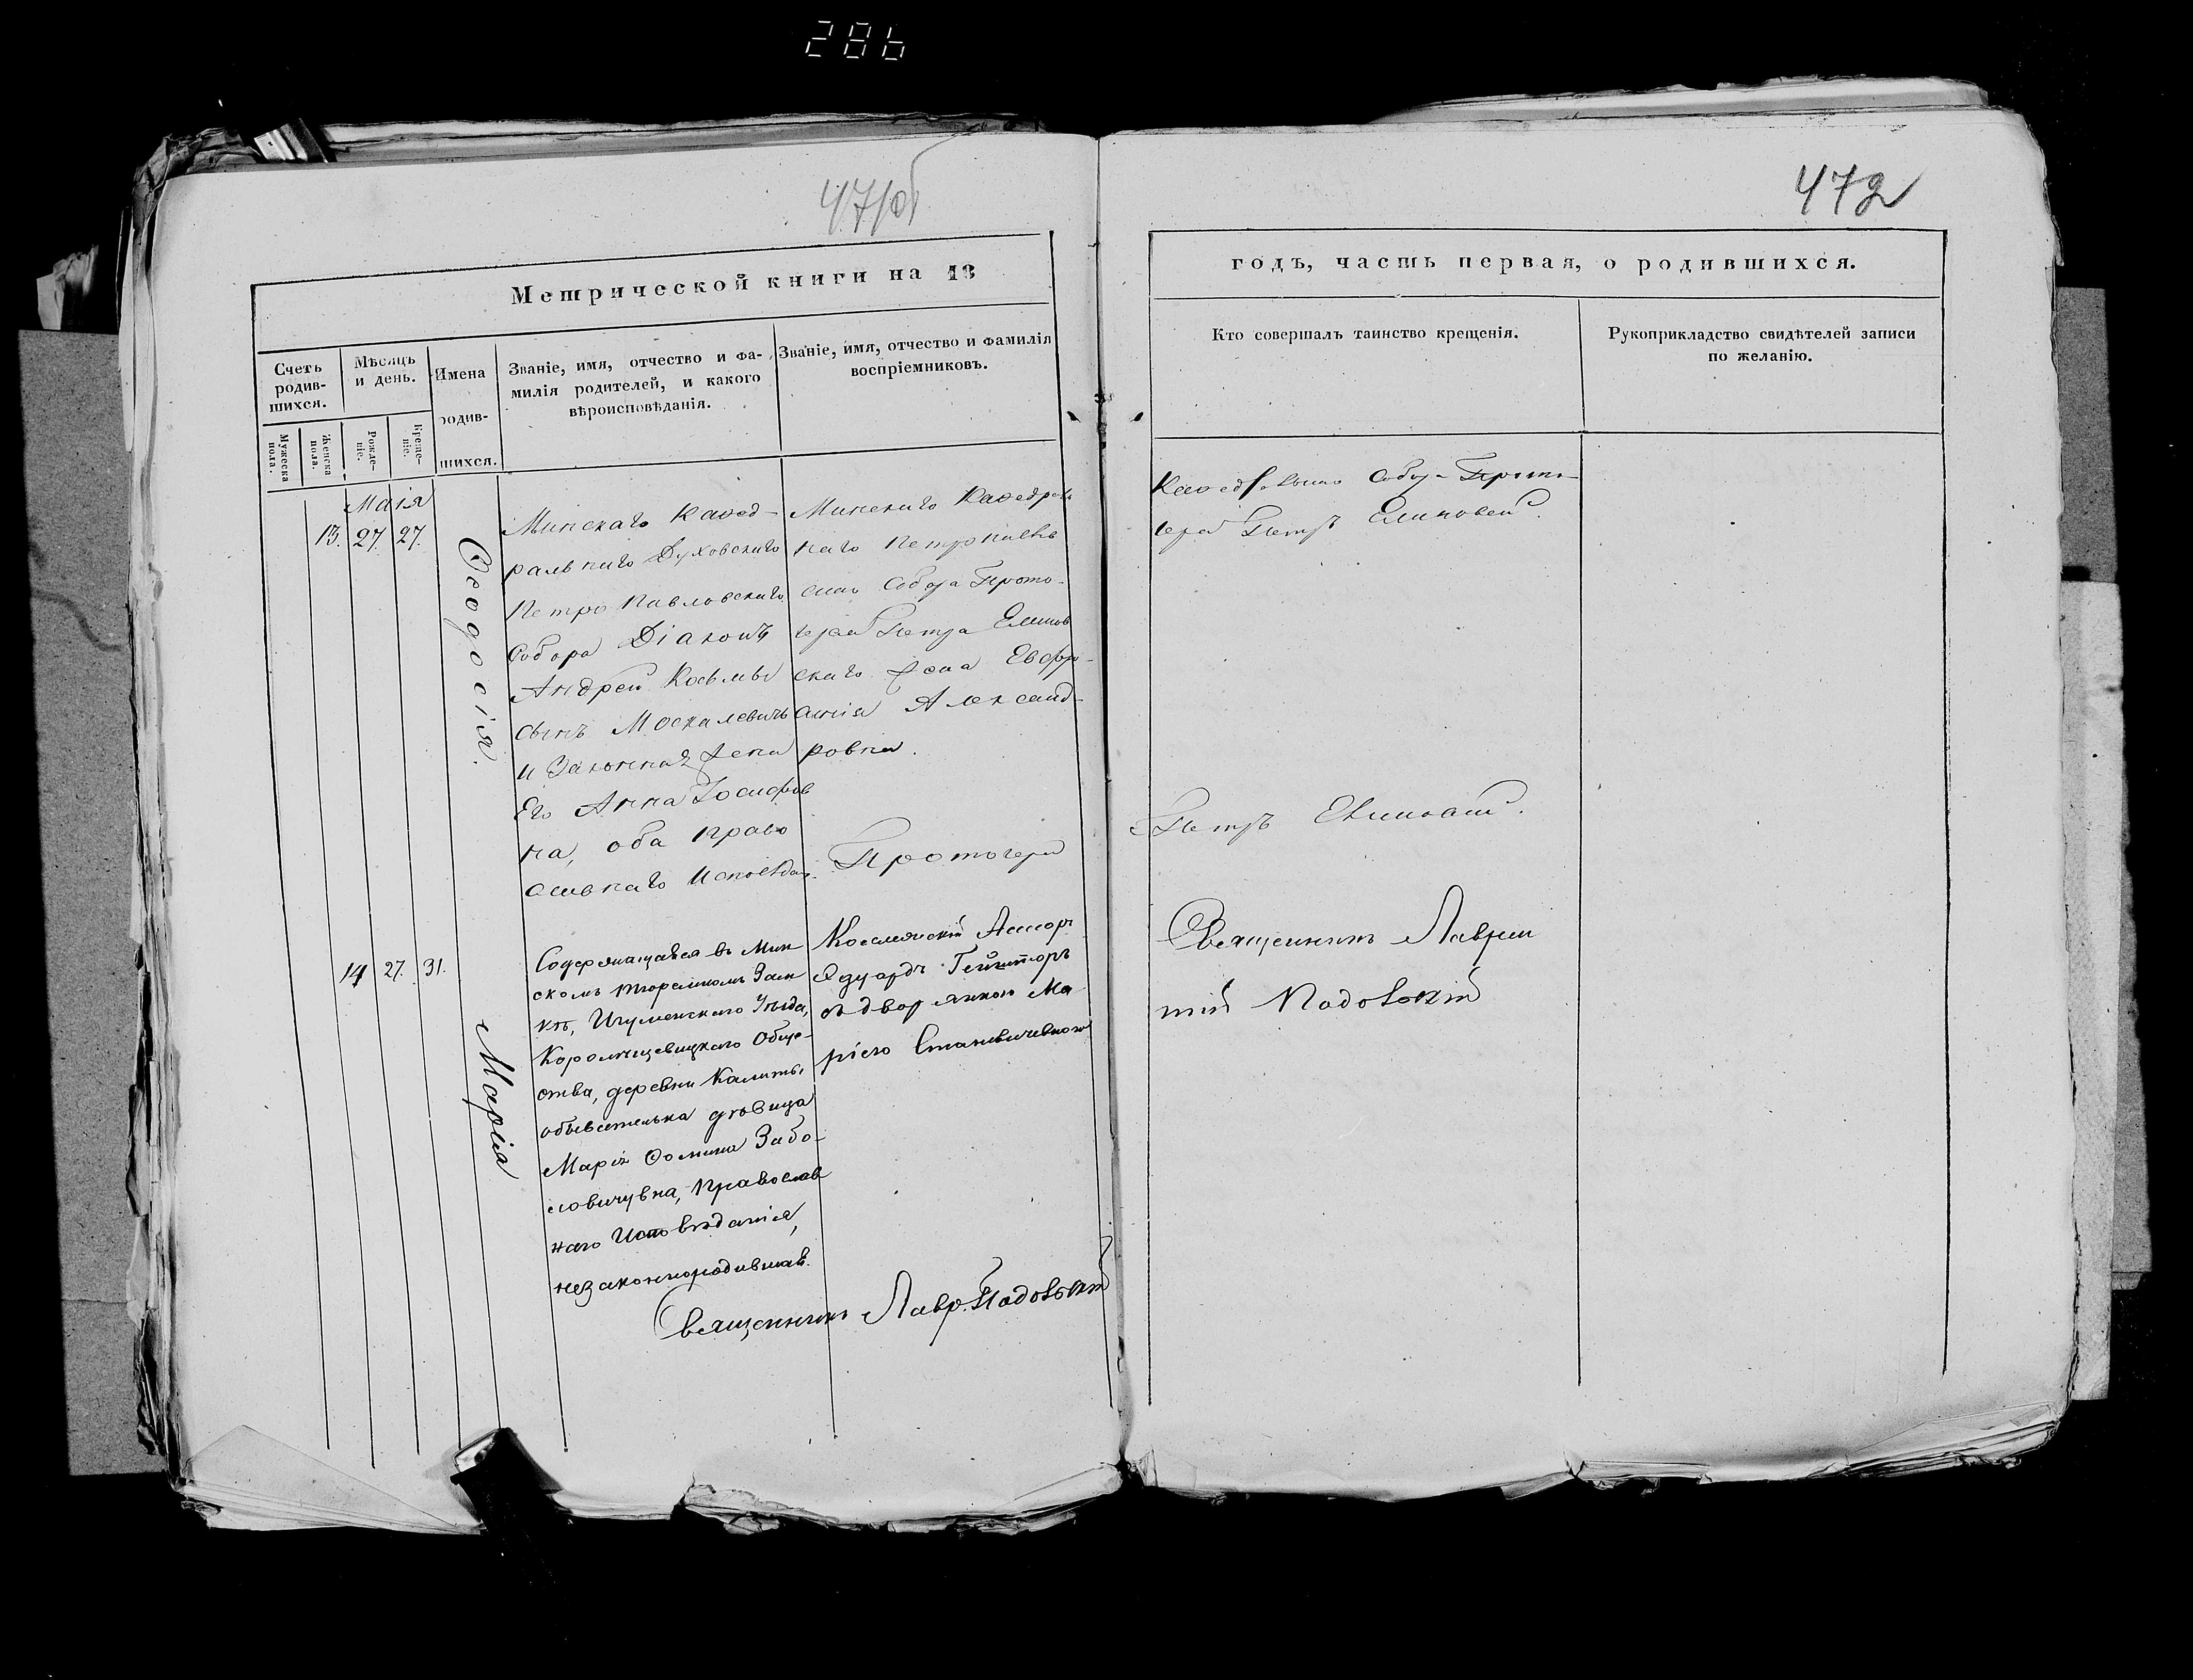 286
471об
472
Метрической книги на 18
годъ, часть первая, о родившихся.
Счетъ родив-шихся.
Мужеска пола.
Женска пола.
Мѣсяцъ и день.
Рожде-ніе.
Креще-ніе.
Имена родив-шихся.
Званіе, имя, отчество и фа-
милія родителей, и какого
вѣроисповѣданія.
Званіе, имя, отчество и фамилія
воспріемниковъ.
Кто совершалъ таинство крещенія.
Рукоприкладство свидѣтелей записи
по желанію.
Маія
13. 27. 27.
Ѳеодосія.
Минскаго Каѳед-
ральнаго Духовскаго
Петро Павловскаго
Собора Діаконъ
Андрей Косьмы
сынъ Москалевичъ
и Законная жена
Его Анна Іосифов
на, оба право
славнаго Исповѣдан.
Минскаго Каѳедраль
наго Петропавлов
скаго Собора Прото-
іерея Петра Елинов
скаго жена Евфро-
синія Александ-
ровна.
Протоіерей
Каѳедральнаго Собора Прото-
іерей Петръ Елиновскій.
Петръ Елиновскій.
14 27. 31.
Марія
Содержащаяся въ Мин
скомъ тюремномъ Зам
кѣ, Игуменскаго Уѣзда,
Королищевицкаго Обще-
ства, деревни Калиты
обывателька дѣвица
Марія Ѳомина Забо-
ловичувна, Православ
наго Исповѣданія,
незаконнородившая.
Коллежскій Ассесоръ
Эдуардъ
съ дворянкою Ма
ріею Станкевичевною
Священникъ Лавр. Подольскій
Священникъ Лаврен
тій Подольскій